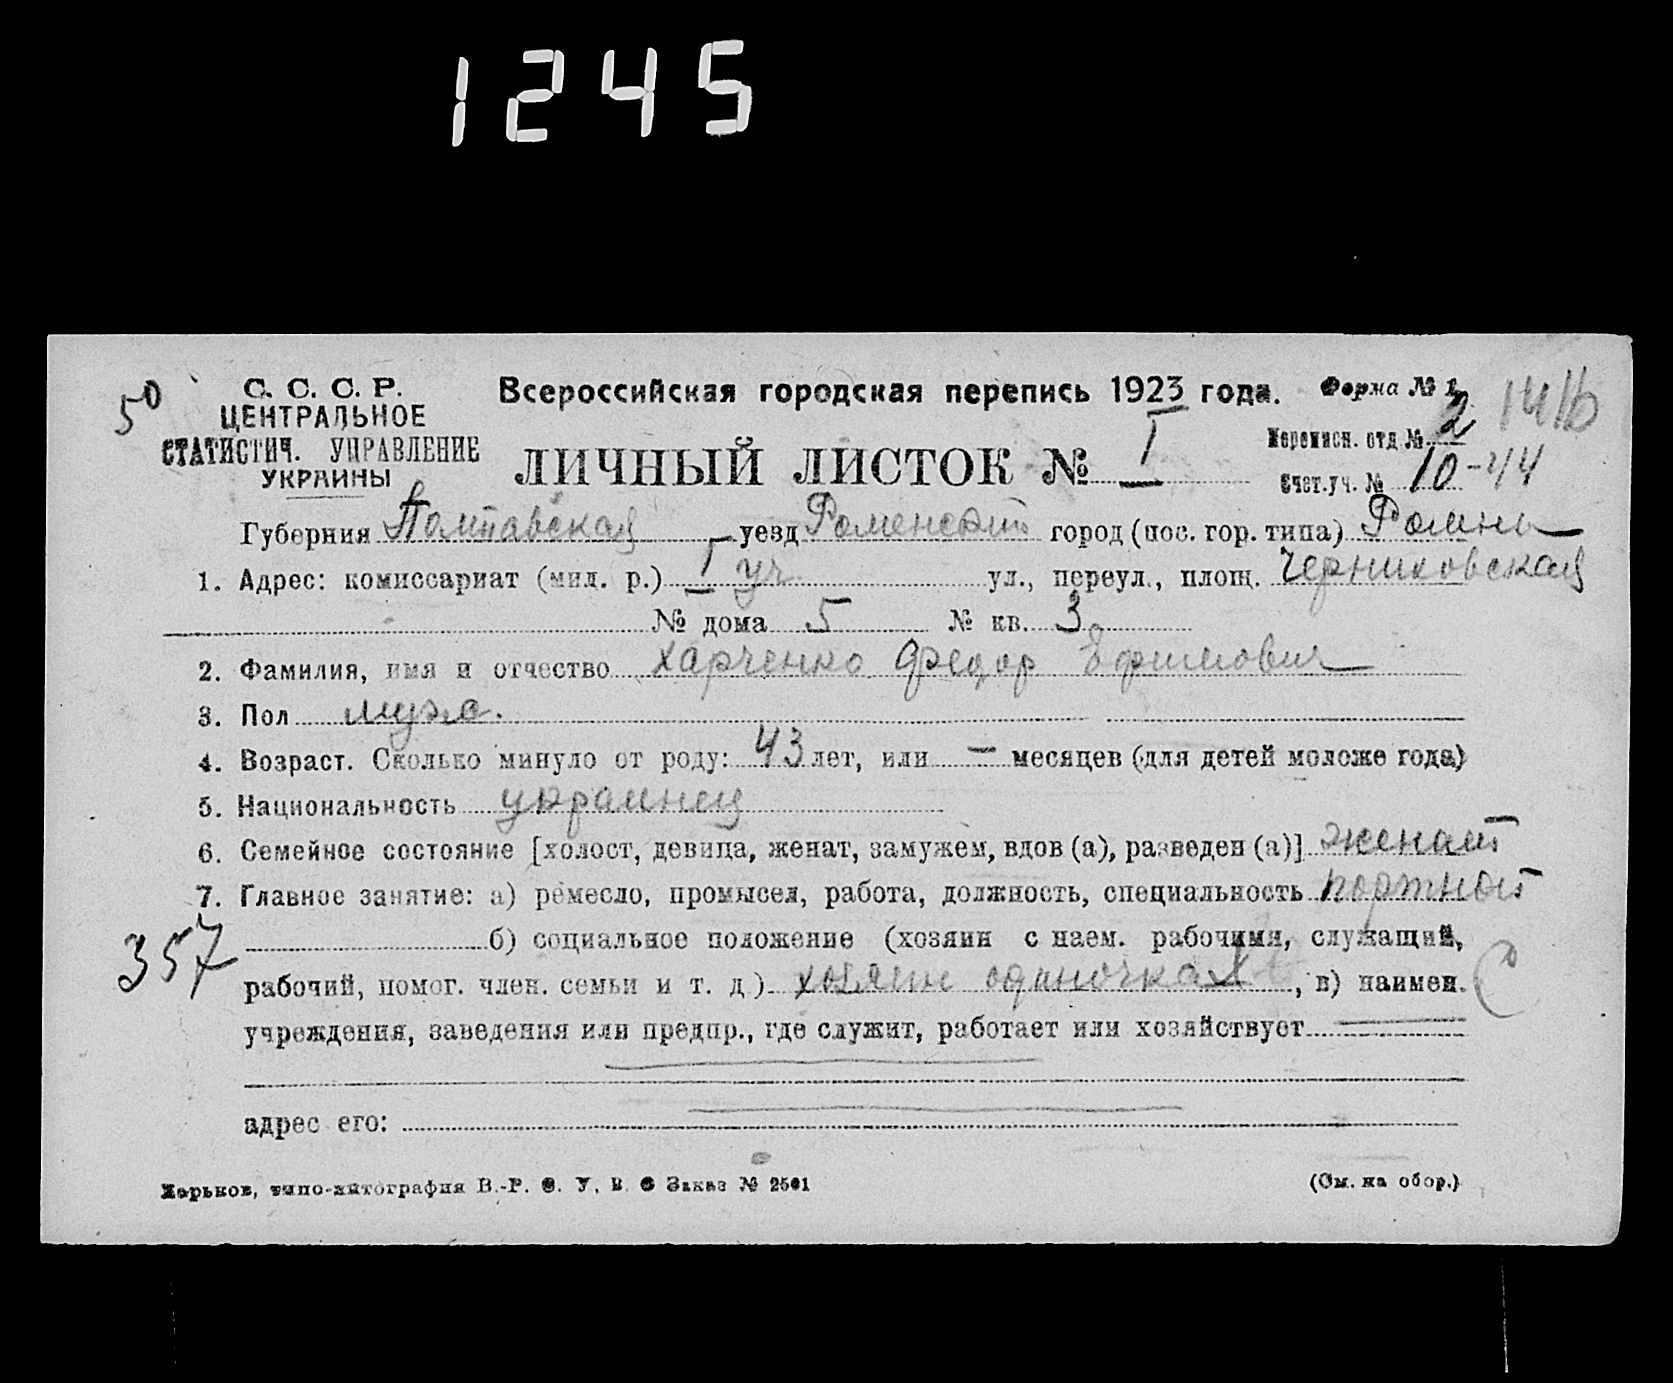 1245
50
С. С. С. Р.
ЦЕНТРАЛЬНОЕ
СТАТИСТИЧ. УПРАВЛЕНИЕ
УКРАИНЫ
Всероссийская городская перепись 1923 года.
Форма № 1
1416
ЛИЧНЫЙ ЛИСТОК № I
Переписн. отд № 2
Счет.уч. № 10-44
Губерния Полтавская уезд Роменский город (пос. гор. типа) Ромны
1. Адрес: комиссариат (мил. р.) I уч ул., переул., площ.
№ дома 5 № кв. 3
2. Фамилия, имя и отчество Харченко Федор Ефимович
3. Пол муж.
4. Возраст. Сколько минуло от роду: 43 лет, или — месяцев (для детей моложе года)
5. Национальность украинец
6. Семейное состояние [холост, девица, женат, замужем, вдов (а), разведен (а)] женат
7. Главное занятие: а) ремесло, промысел, работа, должность, специальность портной
357
б) социальное положение (хозяин с наем. рабочими, служащий,
рабочий, помог. член. семьи и т. д.) хозяин одиночка, в) наимен.
учреждения, заведения или предпр., где служит, работает или хозяйствует
адрес его:
Харьков, типо-литография В.-Р. Заказ № 2501
(См. на обор.)